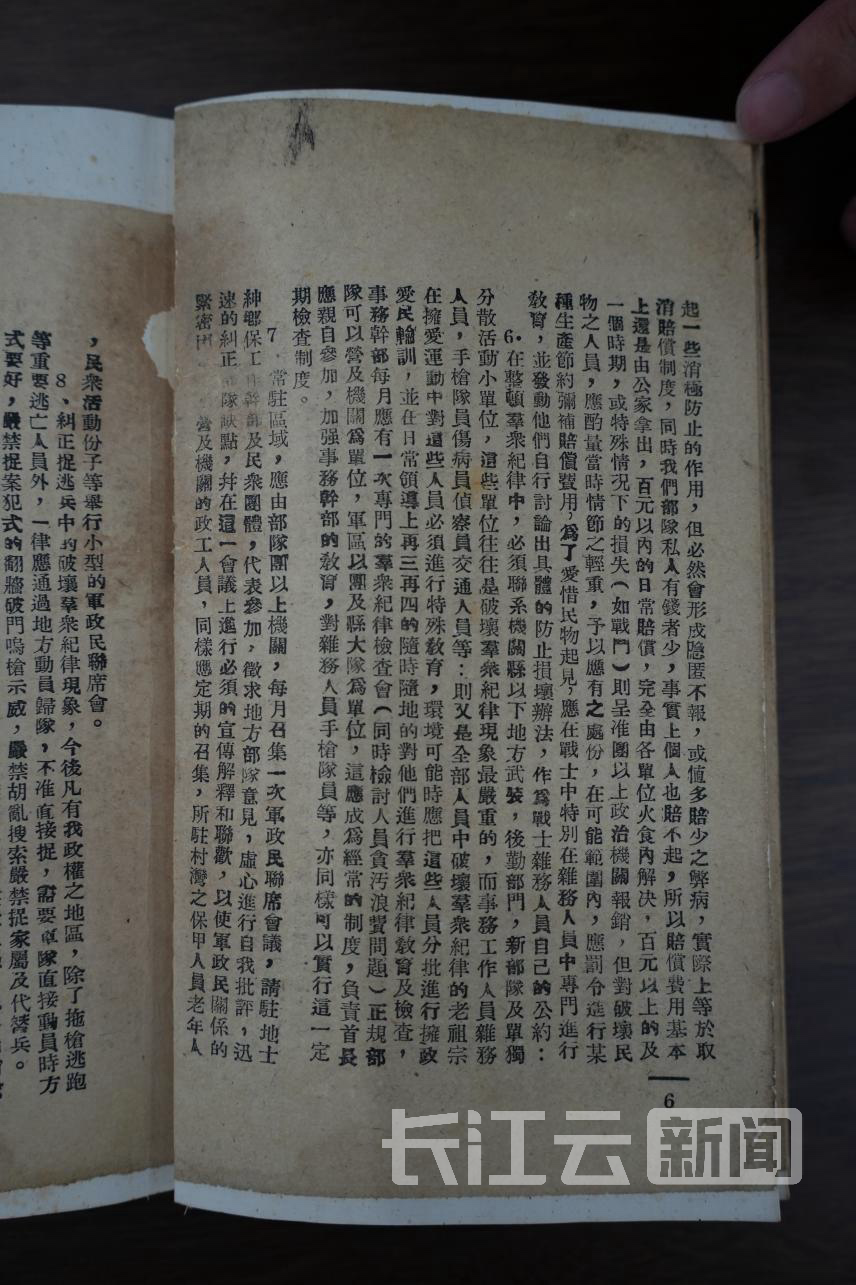 起一些消極防止的作用，但必然會形成隐匿不報，或値多賠少之弊病，實際上等於取
消賠償制度，同時我們部隊私人有錢者少，事實上個人也賠不起，所以賠償費用基本
上還是由公家拿出，百元以內的日常賠償，完全由各單位火食內解决，百元以上的及
一個時期，或特殊情况下的損失（如戰鬥）則呈准團以上政治機關報銷，但對破壞民
物之人員，應酌量當時情節之輕重，予以應有之處份，在可能範圍內，應罰令進行某
種生產節約彌補賠償費用，爲了愛惜民物起見，應在戰士中特別在雜務人員中專門進行
敎育，並發動他們自行討論出具體的防止損壞辦法，作爲戰士雜務人員自己的公約：
6.在整頓羣衆紀律中，必須聯系機關縣以下地方武裝，後勤部門，新部隊及單獨
分散活動小單位，這些單位往往是破壞羣衆紀律現象最嚴重的，而事務工作人員雜務
人員，手槍隊員傷病員偵察員交通人員等：則又是全部人員中破壞羣衆紀律的老祖宗
在擁愛運動中對這些人員必須進行特殊敎育，環境可能時應把這些人員分批進行擁政
愛民輪訓，並在日常領導上再三再四的隨時隨地的對他們進行羣衆紀律敎育及檢查，
事務幹部每月應有一次專門的羣衆紀律檢查會（同時檢討人員貪汚浪費問題）正規部
隊可以營及機關爲單位，軍區以團及縣大隊爲單位，這應成爲經常的制度，負責首長
應親自參加，加强事務幹部的敎育，對雜務人員手槍隊員等，亦同樣可以實行這一定
期檢查制度。
7、常駐區域，應由部隊團以上機關，每月召集一次軍政民聯席會議，請駐地士
紳鄉保工作幹部及民衆團體，代表參加，徵求地方部隊意見，虛心進行自我批評，迅
速的糾正隊缺點，幷在這一會議上進行必須的宣傳解釋和聯歡，以使軍政民關係的
緊密團營及機關的政工人員，同樣應定期的召集，所駐村灣之保甲人員老年人
6
，民衆活動份子等舉行小型的軍政民聯席會。
8、糾正捉逃兵中的破壞羣衆紀律現象，今後凡有我政權之地區，除了拖槍逃跑
等重要逃亡人員外，一律應通過地方動員歸隊，不准直接捉，需要軍隊直接動員時方
式要好，嚴禁捉案犯式的翻牆破門鳴槍示威，嚴禁胡亂搜索嚴禁捉家屬及代替兵。
长江云新闻